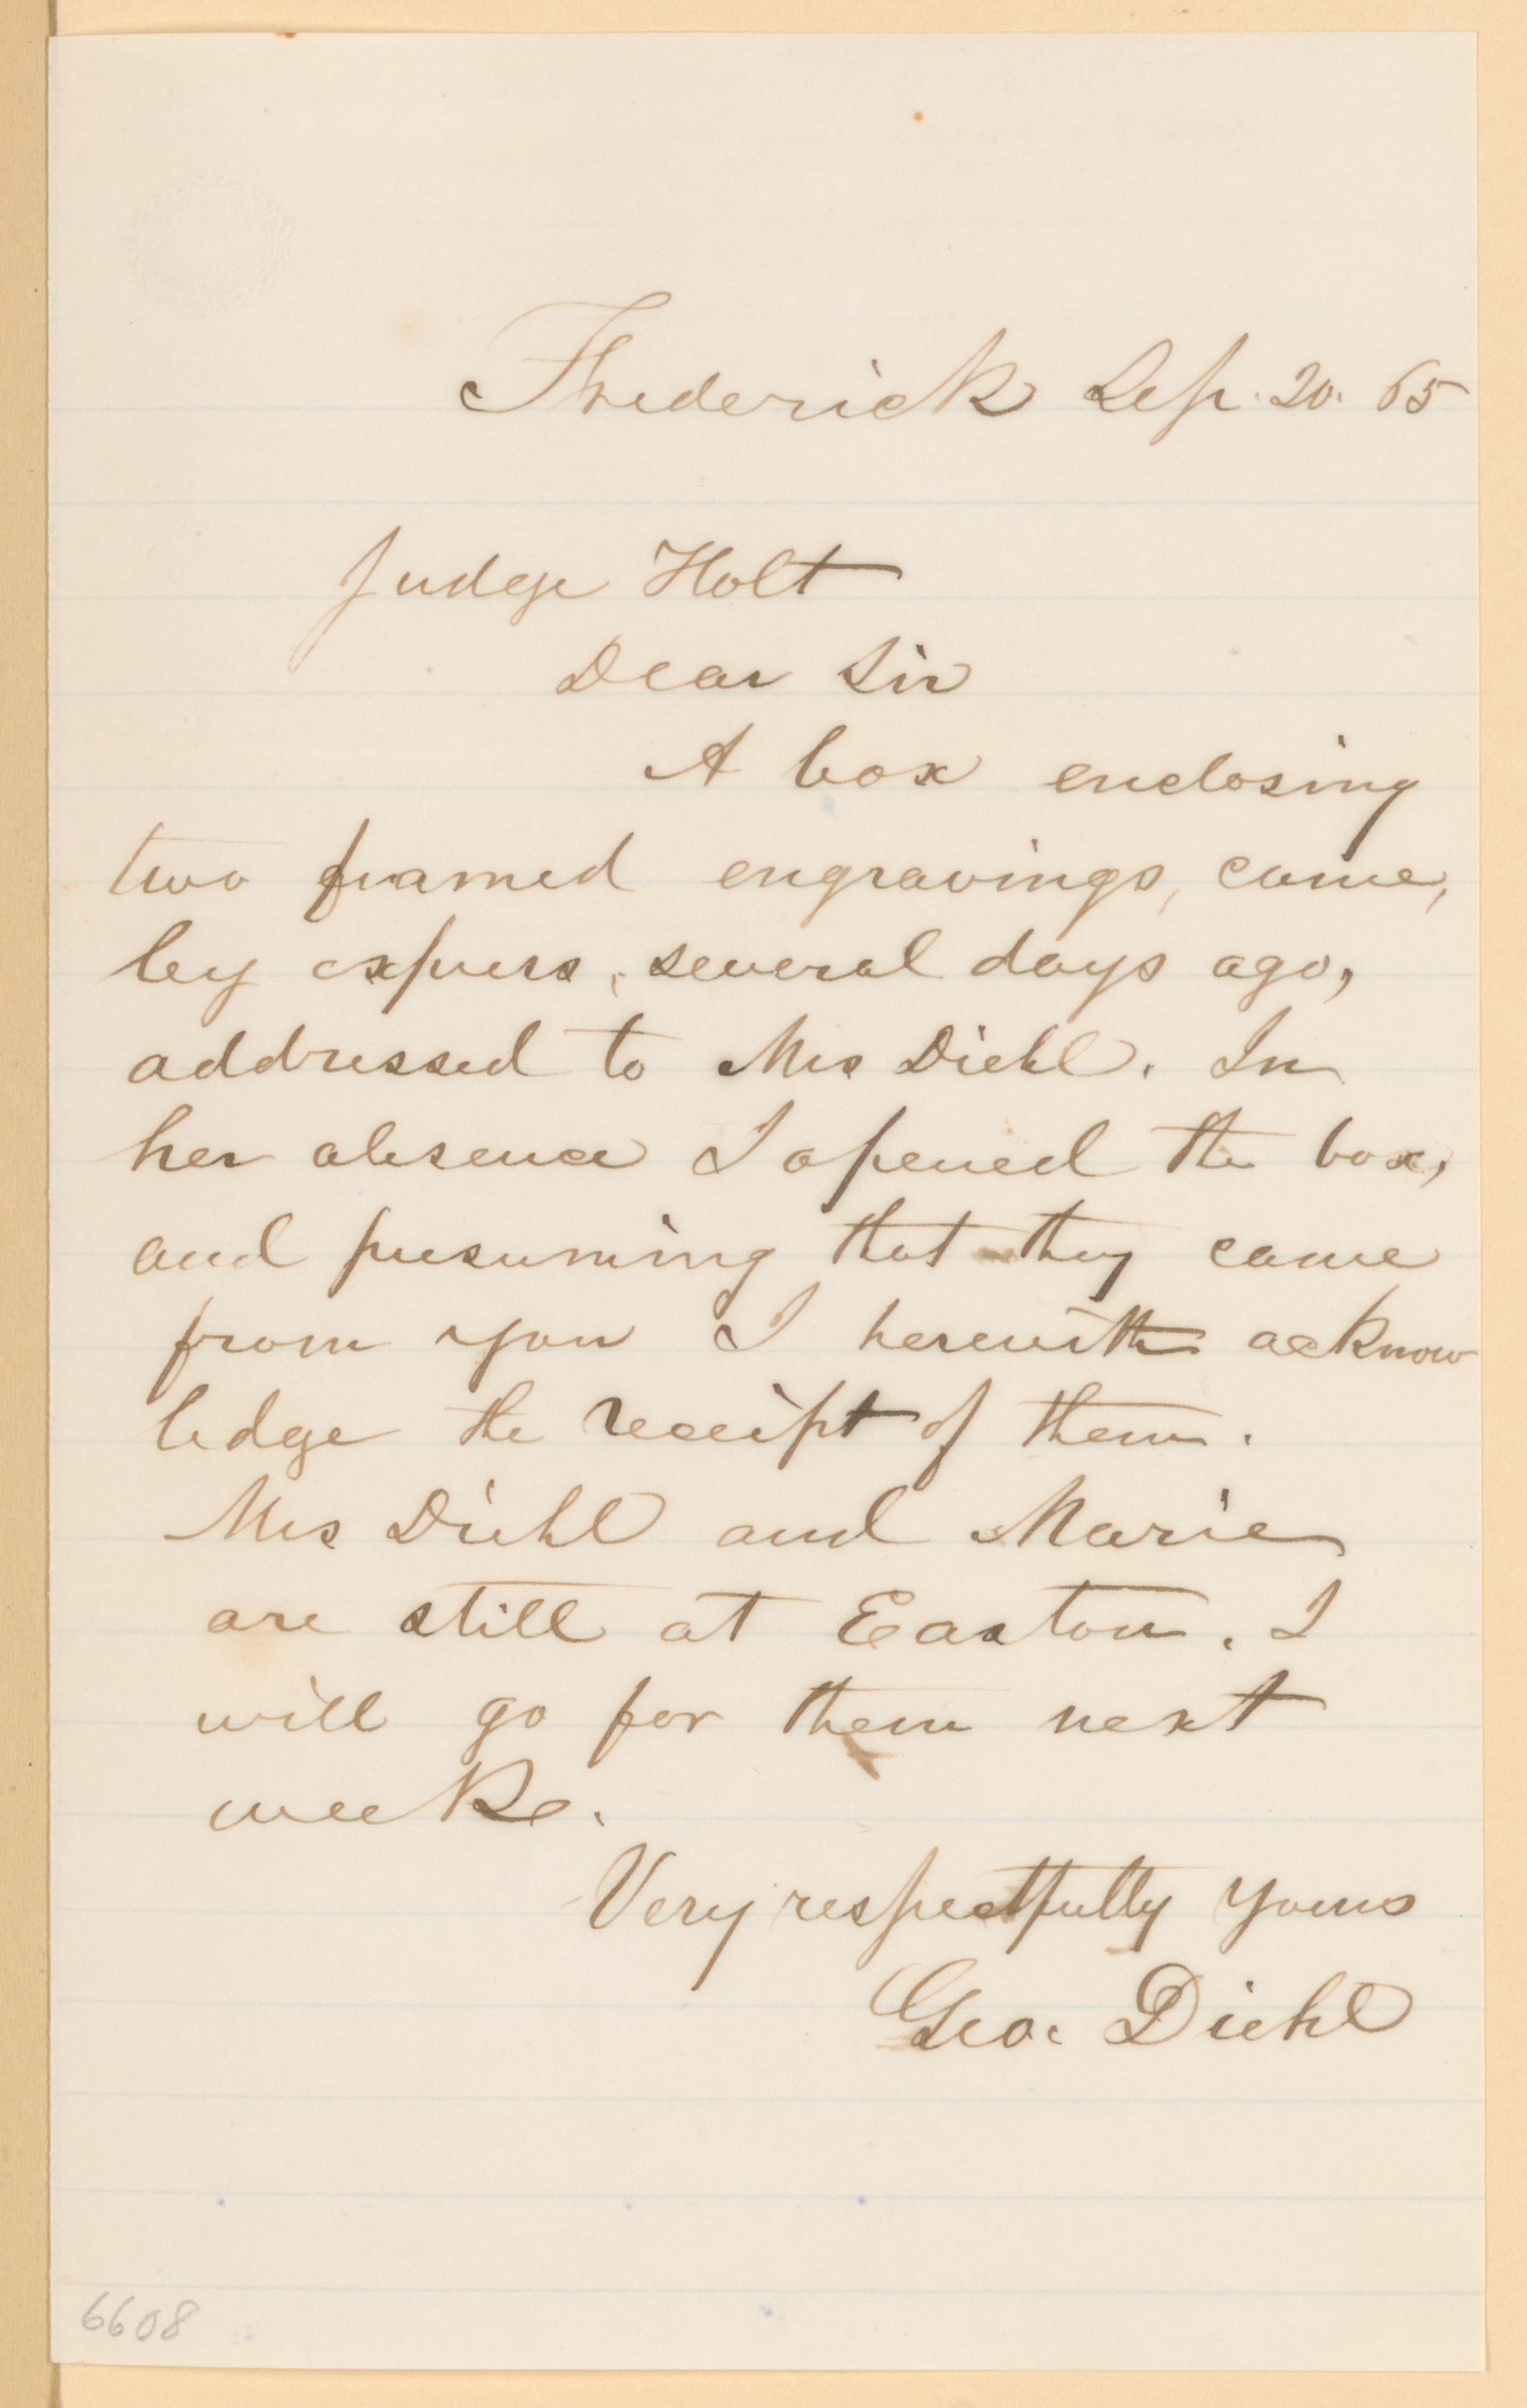 Frederick Sep. 20. 65
Judge Holt
Dear Sir
A box enclosing
two framed engravings, came,
by express, several days ago,
addressed to Mrs Diehl. In
her absence I opened the box,
and presuming that they came
from you I herewith acknow
ledge the receipt of them.
Mrs Diehl and Marie
are still at Easton. I
will go for them next
week.
Very respectfully yours
Geo. Diehl
6608